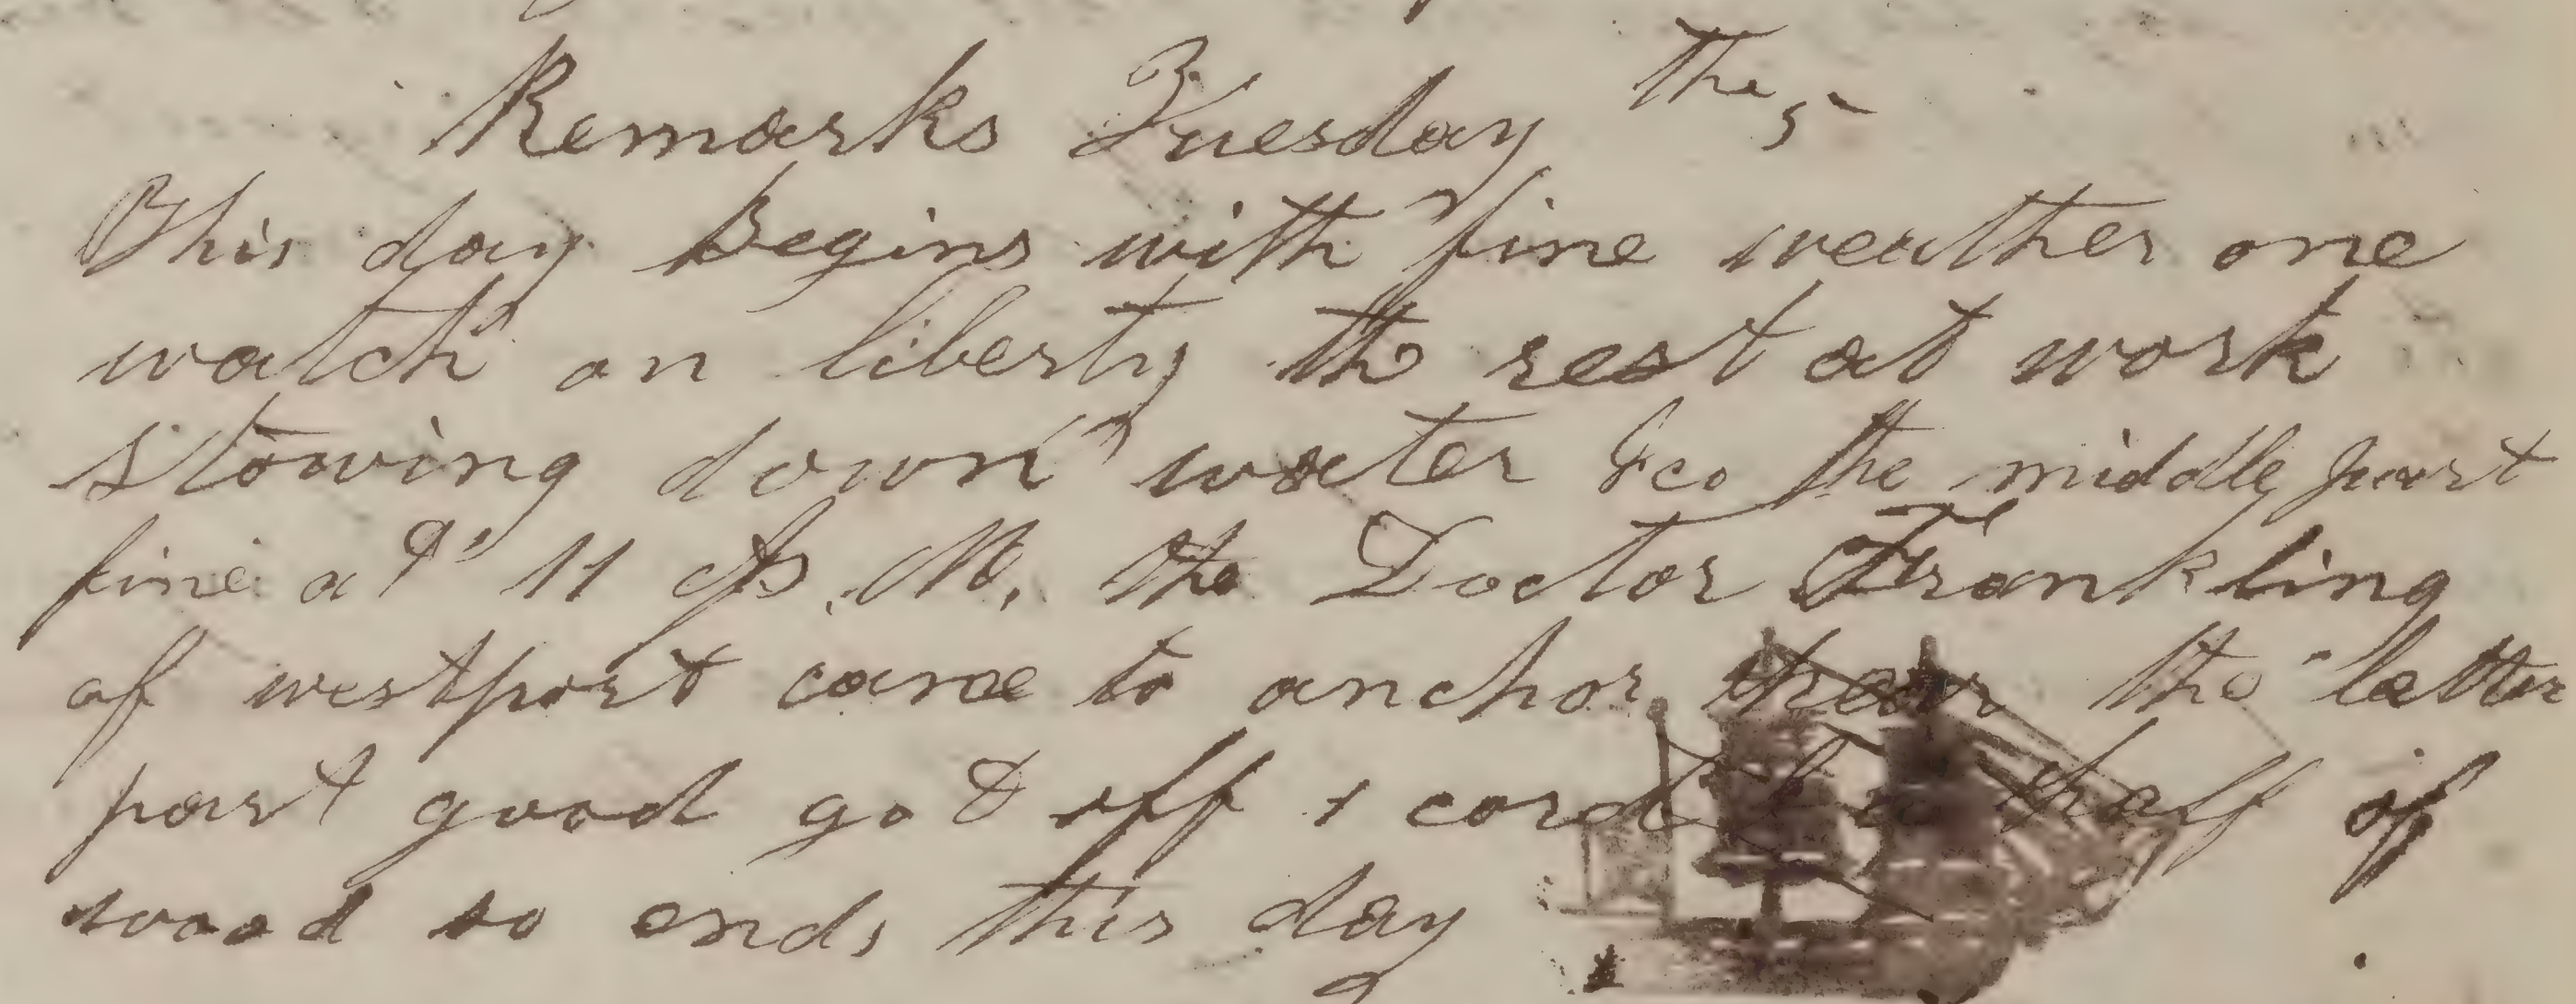 Remarks Tuesday The 5
This day Begins with fine weather one
watch on liberty the rest at work
stowing down water &co the middle part
fine at 11 P. M. the Doctor Frankling
of westport came to anchor the latter
part good got off 1 cord & a half of
wood so ends this day